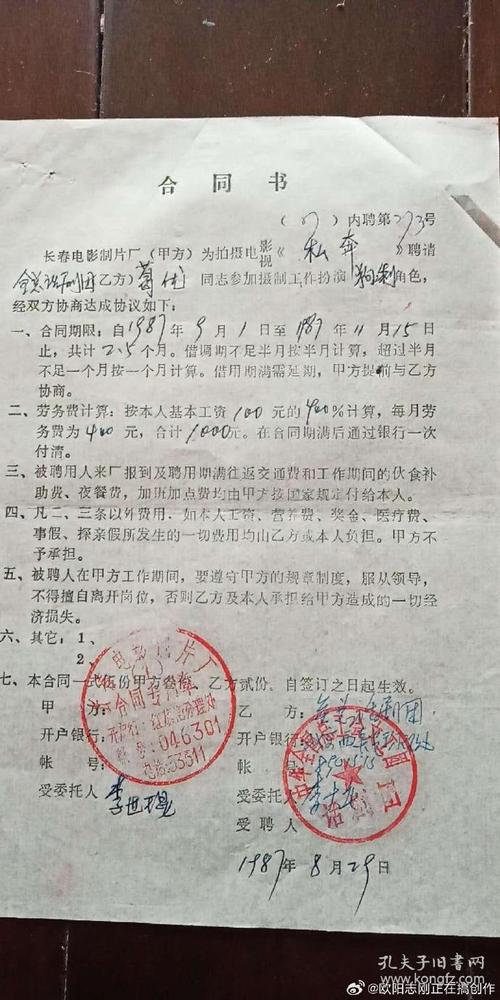 合同书
(87)内聘第273号
长春电影制片厂(甲方)为拍摄电影视《私奔》聘请
全总话剧团(乙方)葛优同志参加摄制工作扮演狗剩角色,
经双方协商达成协议如下:
一、合同期限:自1987年9月1日至1987年11月15日
止,共计2.5个月。借调期不足半月按半月计算,超过半月
不足一个月按一个月计算。借用期满需延期,甲方提前与乙方
协商。
二、劳务费计算:按本人基本工资100元的400%计算,每月劳
务费为400元,合计1000元。在合同期满后通过银行一次
付清。
三、被聘用人来厂报到及聘用期满往返交通费和工作期间的伙食补
助费、夜餐费,加班加点费均由甲方按国家规定付给本人。
四、凡二、三条以外费用,如本人工资、营养费、奖金、医疗费、
事假、探亲假所发生的一切费用均由乙方或本人负担。甲方不
予承担。
五、被聘人在甲方工作期间,要遵守甲方的规章制度,服从领导,
不得擅自离开岗位,否则乙方及本人承担给甲方造成的一切经
济损失。
六、其它:1、
2、
七、本合同一式伍份甲方叁份,乙方贰份,自签订之日起生效。
甲方:
开户银行:
帐号:
受委托人 李世琨
电影制片厂
合同专用章
046301
电话:53511
乙方:全总话剧团
开户银行:
帐号:
受委托人
受聘人
中华全国总工会
话剧团
1987年8月29日
孔夫子旧书网
@欧阳志刚正在搞创作